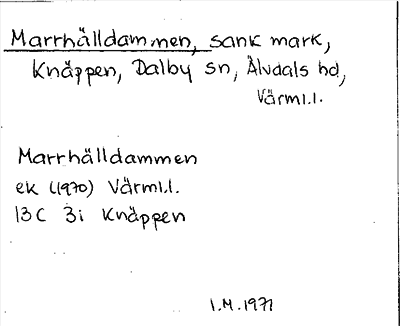 Marrhälldammen, sank mark,
Knäppen, Dalby sn, Älvdals hd,
Värml.l.
Marrhälldammen
ek (1970) Värml.l.
13C 3i Knäppen
I.M. 1971